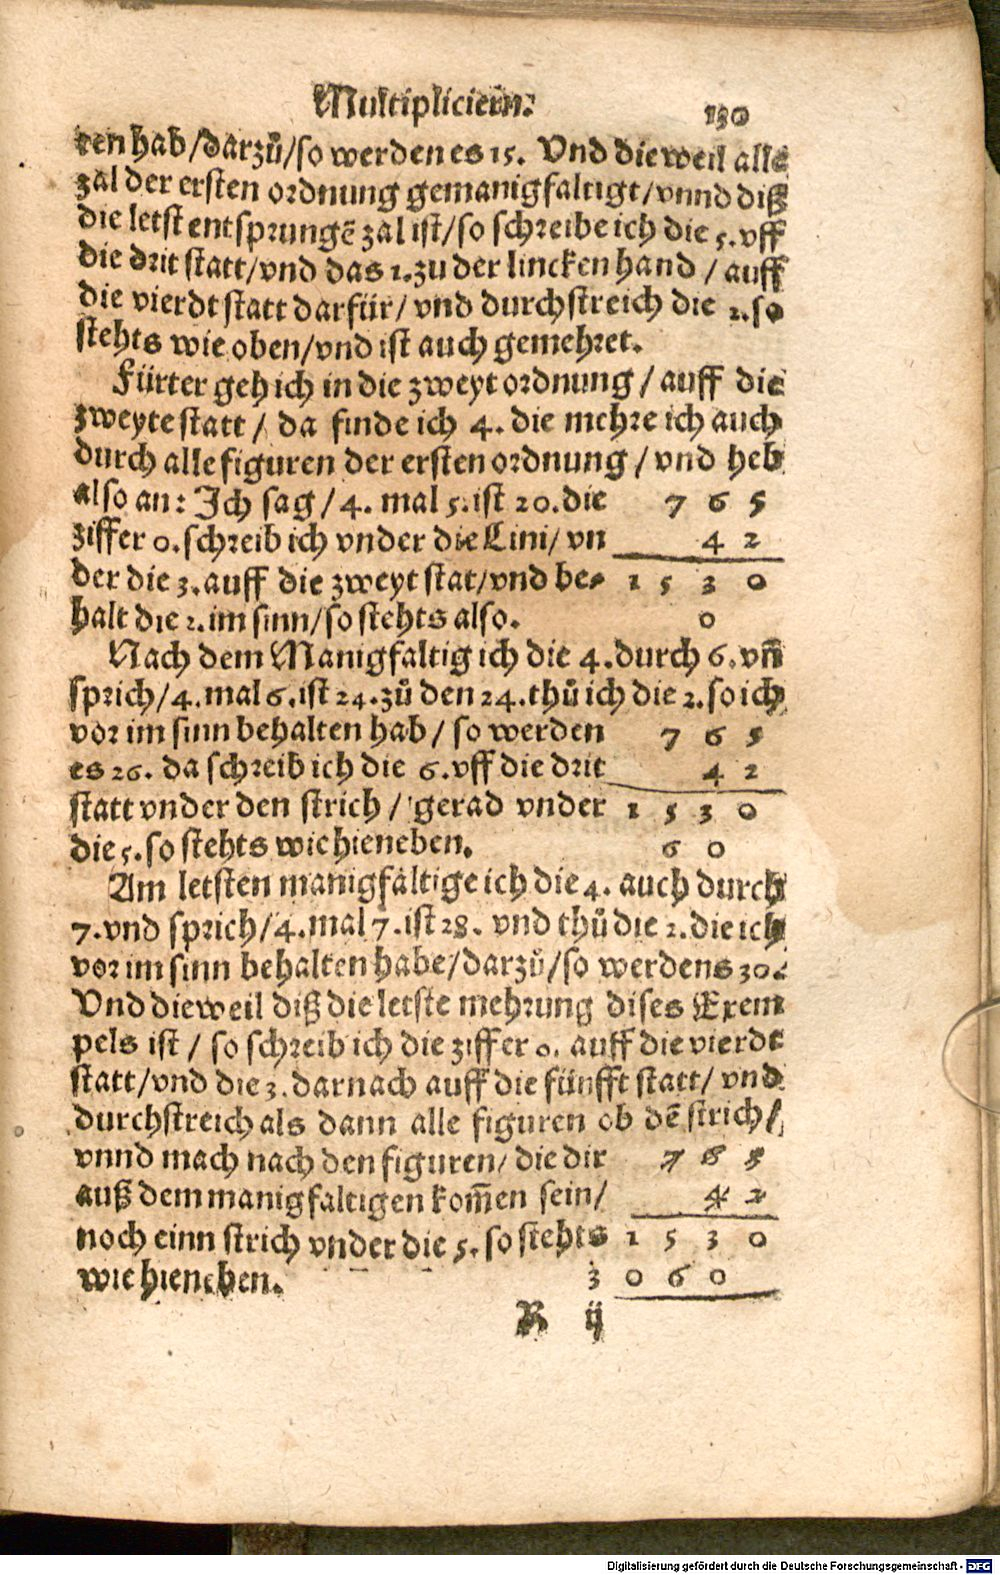 Multipliciern. 130
ten hab/darzů/so werden es 15. Vnd die weil alle
zal der ersten ordnung gemanigfaltigt/vnnd diß
die letst entsprungē zal ist/so schreibe ich die 5. vff
die drit statt/vnd das 1. zu der lincken hand / auff
die vierdt statt darfür/ vnd durchstreich die 2. so
stehts wie oben/vnd ist auch gemehret.
Fürter geh ich in die zweyt ordnung / auff die
zweyte statt / da finde ich 4. die mehre ich auch
durch alle figuren der ersten ordnung / vnd heb
also an: Ich sag / 4. mal 5. ist 20. die 7 6 5
ziffer 0. schreib ich vnder die Lini/ vn 4 2
der die 3. auff die zweyt stat/vnd be- 1 5 3 0
halt die 2. im sinn/so stehts also. 0
Nach dem Manigfaltig ich die 4. durch 6. vn̄
sprich/4. mal 6. ist 24. zů den 24. thů ich die 2. so ich
vor im sinn behalten hab / so werden 7 6 5
es 26. da schreib ich die 6. vff die drit 4 2
statt vnder den strich / gerad vnder 1 5 3 0
die 5. so stehts wie hieneben. 6 0
Am letsten manigfältige ich die 4. auch durch
7. vnd sprich/4. mal 7. ist 28. vnd thů die 2. die ich
vor im sinn behalten habe/darzů/so werdens 30.
Vnd dieweil diß die letste mehrung dises Exem
pels ist / so schreib ich die ziffer 0. auff die vierdt
statt/vnd die 3. darnach auff die fünfft statt/ vnd
durchstreich als dann alle figuren ob dē strich/
vnnd mach nach den figuren/ die dir 7 6 5
auß dem manigfaltigen kom̄en sein/ 4 2
noch einn strich vnder die 5. so stehts 1 5 3 0
wie hieneben. 3 0 6 0
R ij
Digitalisierung gefördert durch die Deutsche Forschungsgemeinschaft - DFG